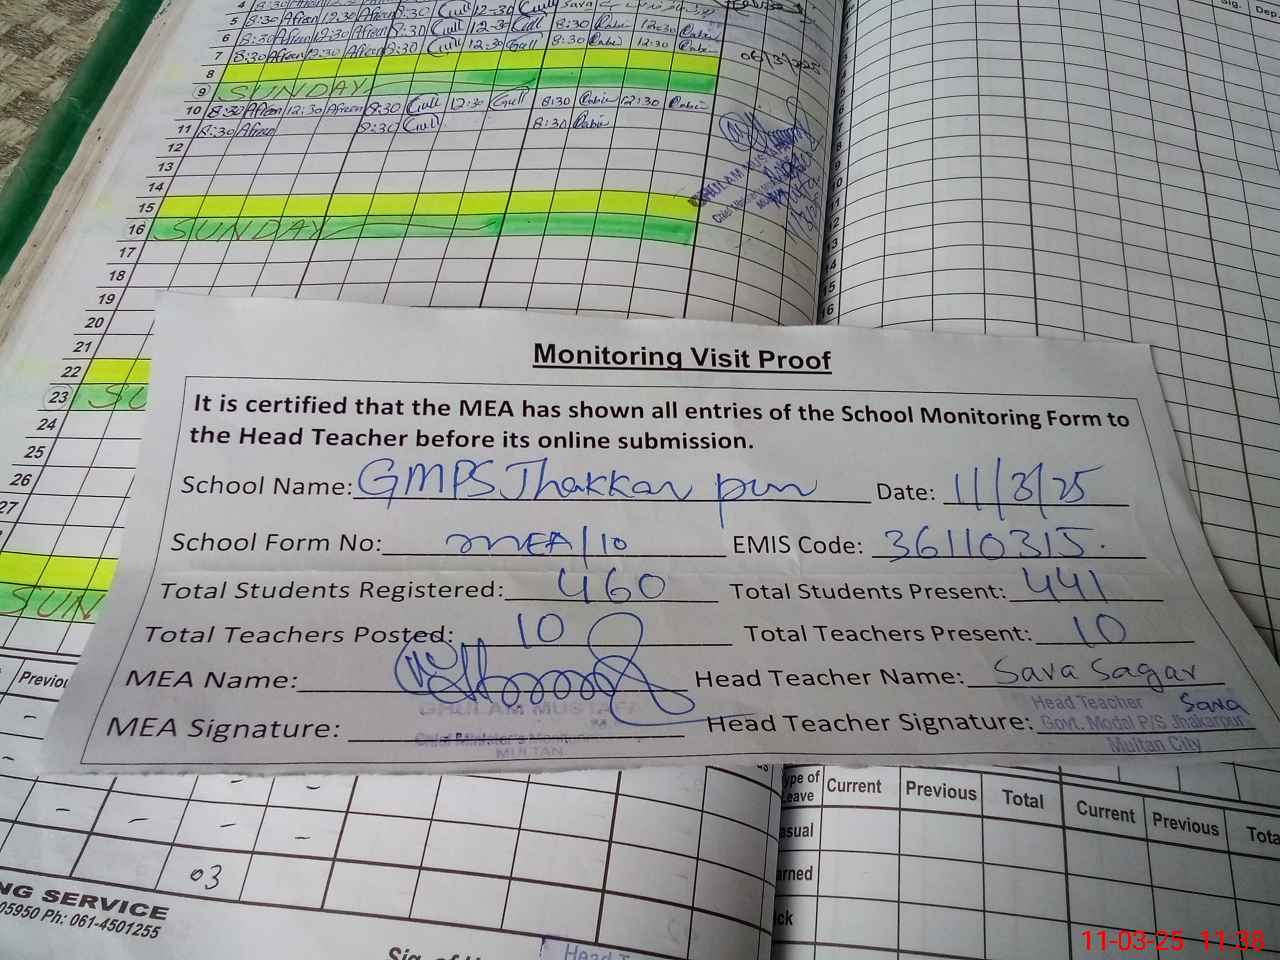 Sig. Dep
4 8:30 Afreen 12:30 Afreen 8:30 Gull 12-30 Gull
5 8:30 Afreen 12:30 Afreen 8:30 Gull 12-30 Gull 8:30 Rabi 12:30 Rabi
6 8:30 Afreen 12:30 Afreen 8:30 Gull 12:30 Gull 8:30 Rabi 12:30 Rabi
7
8
9 SUNDAY
06/3/2025
10 8:30 Afreen 12:30 Afreen 8:30 Gull 12:30 Gull 8:30 Rabi 12:30 Rabi
11 8:30 Afreen 8:30 Gull 8:30 Rabi
12
13
14
15
16 SUNDAY
17
18
19
20
21
22
23 SU
24
25
26
27
SUN
Monitoring Visit Proof
It is certified that the MEA has shown all entries of the School Monitoring Form to
the Head Teacher before its online submission.
School Name: GMPS Jhakkar pur Date: 11/3/25
School Form No: MEA/10 EMIS Code: 36110315.
Total Students Registered: 460 Total Students Present: 441
Total Teachers Posted: 10 Total Teachers Present: 10
MEA Name: Head Teacher Name: Sara Sagar
GHULAM MUSTAFA
MEA Signature: Head Teacher Signature: Sara
Chief Minister's Monitoring
MULTAN.
Head Teacher
Govt. Model P/S Jhakarpur
Multan City
Previou
03
NG SERVICE
05950 Ph: 061-4501255
Type of Leave Current Previous Total Current Previous Tota
asual
arned
ck
Head T
11-03-25 11:38